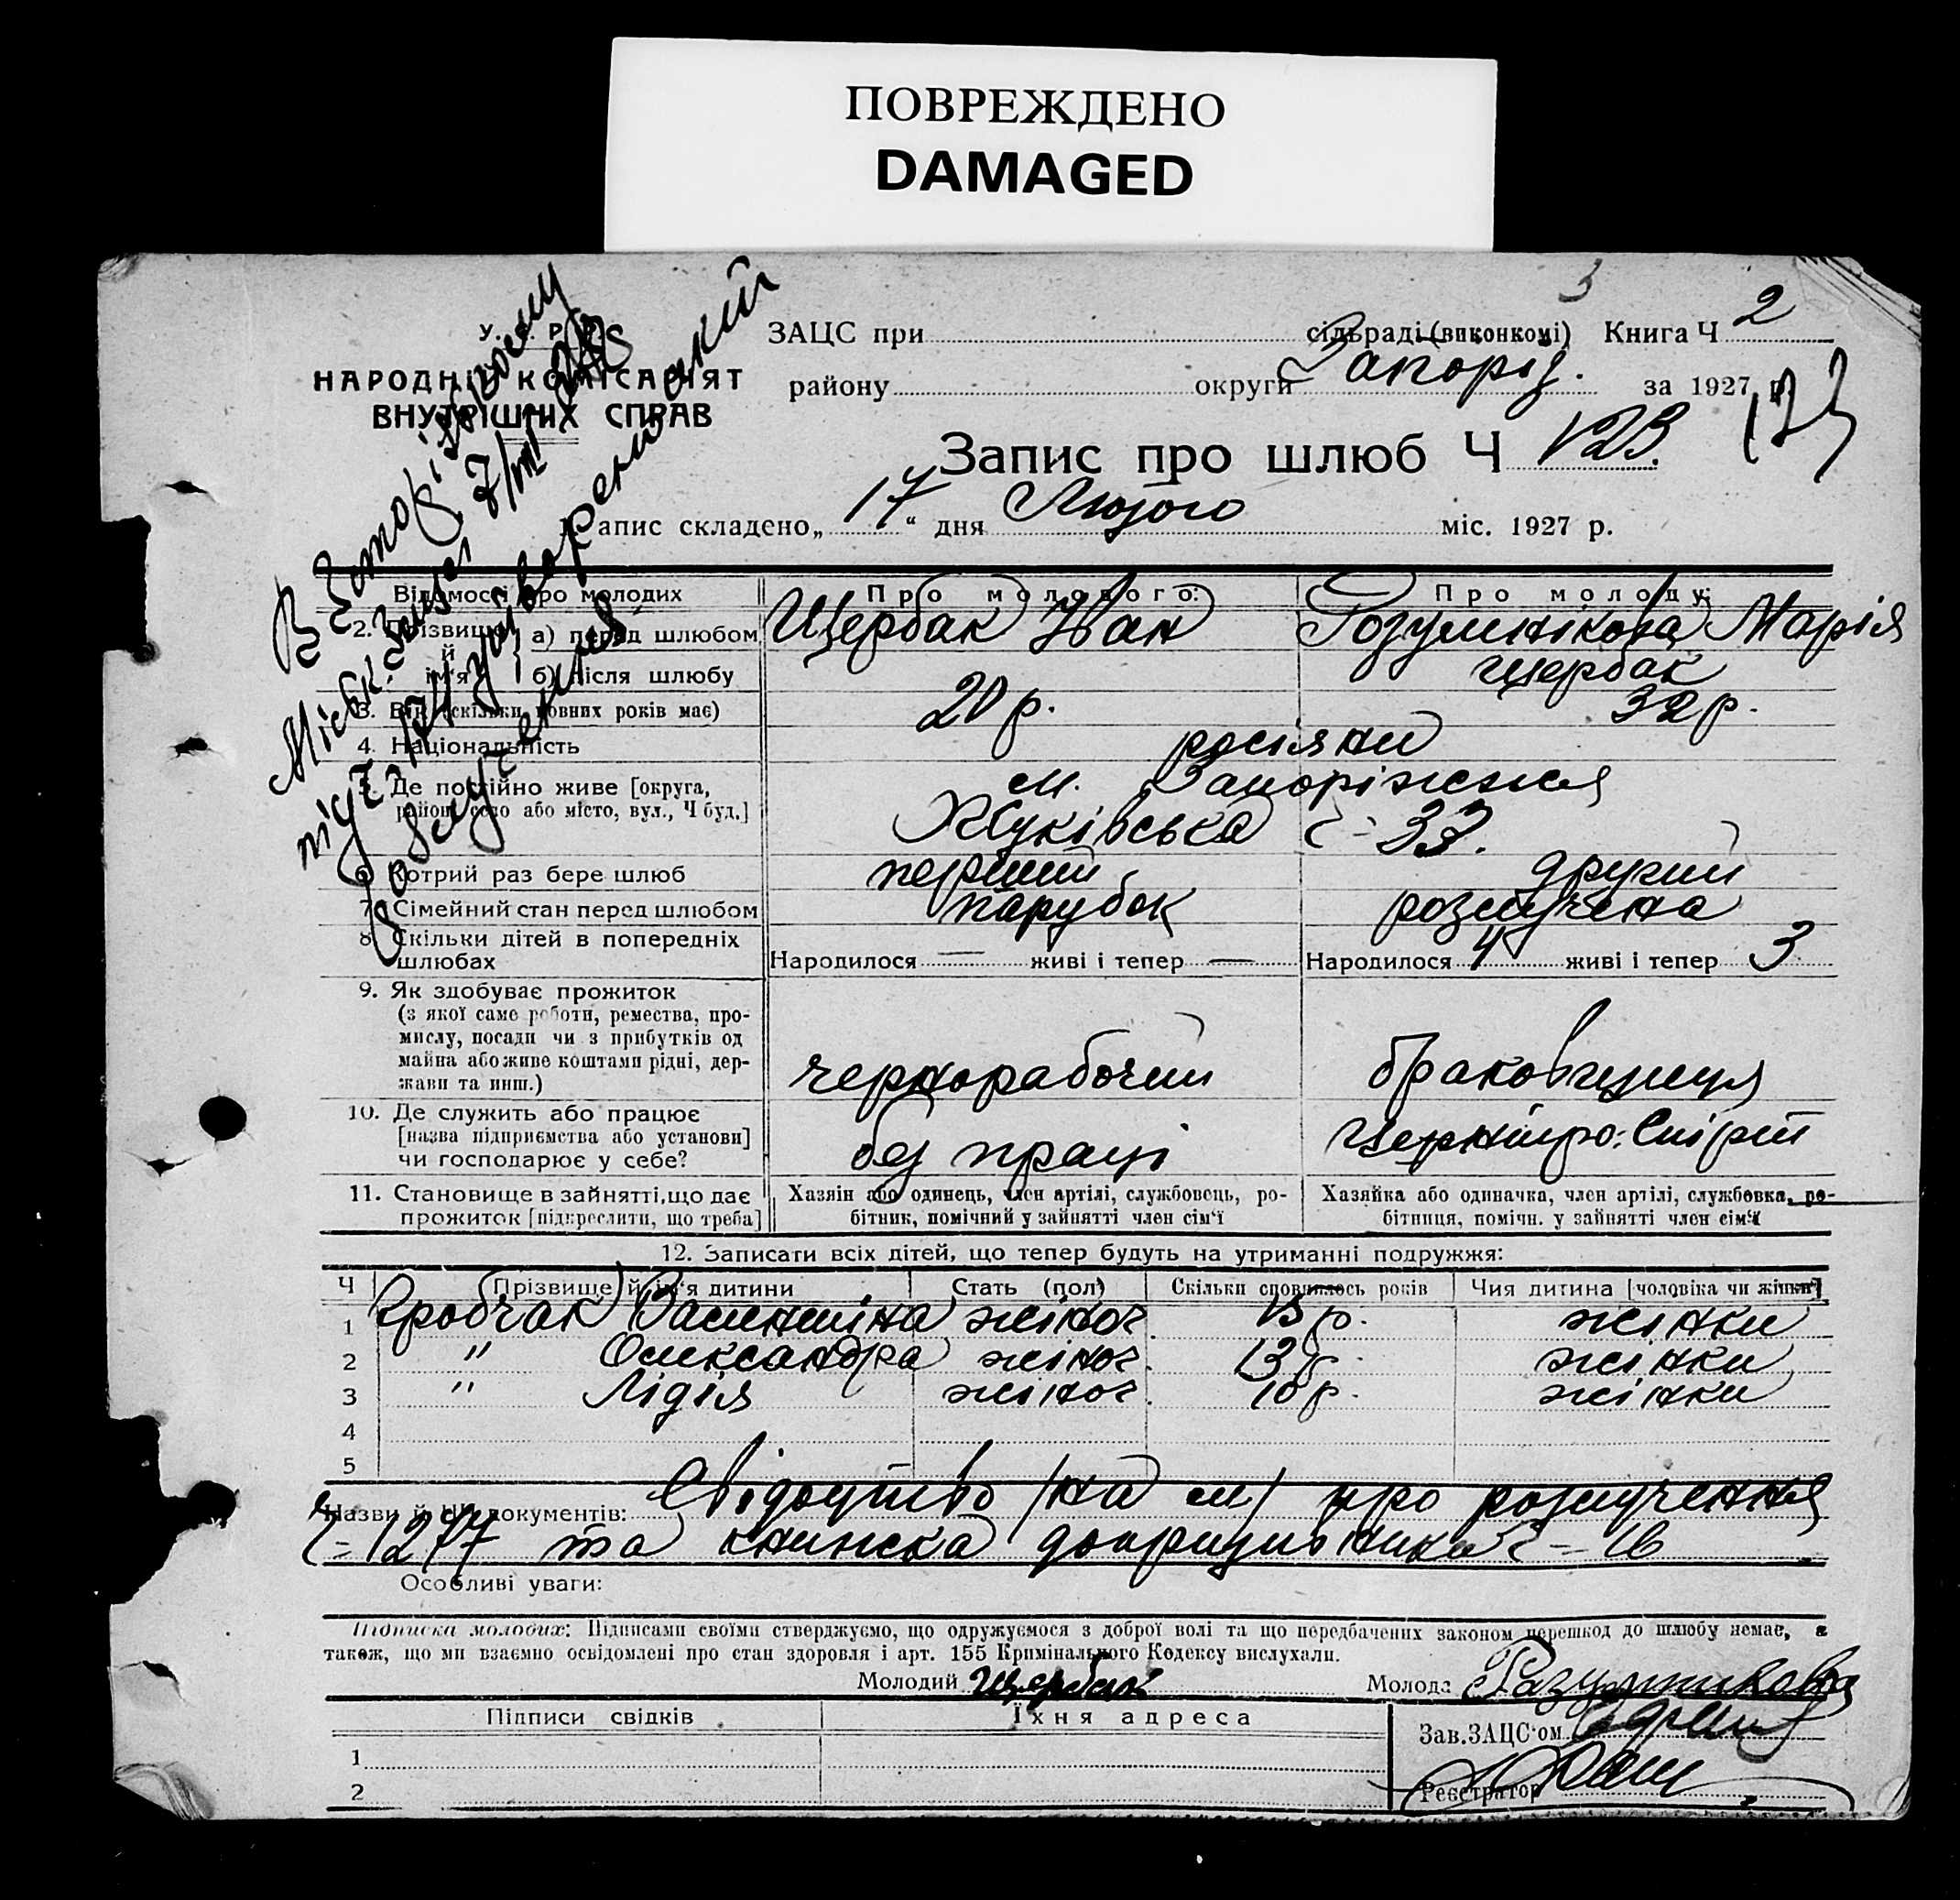 ПОВРЕЖДЕНО
DAMAGED
3
У. С. Р. Р.
НАРОДНІЙ КОМІСАРІЯТ
ВНУТРІШНІХ СПРАВ
ЗАЦС при сільраді (виконкомі) Книга Ч 2
району округи Запоріз. за 1927 р.
Запис про шлюб Ч 123. 123
Запис складено „17“ дня Лютого міс. 1927 р.
Відомості про молодих Про молодого: Про молоду:
2. Прізвище й ім'я а) перед шлюбом Щербак Іван Розумнікова Марія
б) після шлюбу Щербак
3. Вік (скільки повних років має) 20 р. 32 р.
4. Національність росіяни
5. Де постійно живе [округа, м. Запоріжжя
район, село або місто, вул., Ч буд.] Жуківська ч=33.
6. Котрий раз бере шлюб перший другий
7. Сімейний стан перед шлюбом парубок розлучена
8. Скільки дітей в попередніх
шлюбах Народилося — живі і тепер — Народилося 4 живі і тепер 3
9. Як здобуває прожиток
(з якої саме роботи, ремества, про-
мислу, посади чи з прибутків од
майна або живе коштами рідні, дер-
жави та инш.) чернорабочий браковщиця
10. Де служить або працює
[назва підприємства або установи]
чи господарює у себе? без праці Спірт
11. Становище в зайнятті, що дає Хазяїн або одинець, член артілі, службовець, ро- Хазяйка або одиначка, член артілі, службовка, ро-
прожиток [підкреслити, що треба] бітник, помічний у зайнятті член сім'ї бітниця, помічн. у зайнятті член сім'ї
12. Записати всіх дітей, що тепер будуть на утриманні подружжя:
Ч Прізвище й ім'я дитини Стать (пол) Скільки сповнилось років Чия дитина [чоловіка чи жінки]
1 Валентіна жіноч. 15 р. жінки
2 " Олександра жіноч. 13 р. жінки
3 " Лідія жіноч. 10 р. жінки
4
5
Назви й ЧЧ документів: Свідоцтво про розлучення
ч=1277 та книжка допризивника ч=16
Особливі уваги:
Підписка молодих: Підписами своїми стверджуємо, що одружуємося з доброї волі та що передбачених законом перешкод до шлюбу немає, а
також, що ми взаємно освідомлені про стан здоровля і арт. 155 Кримінального Кодексу вислухали.
Молодий Щербак Молода Разумникова
Підписи свідків Їхня адреса
Зав. ЗАЦС'ом
1
Реєстратор
2